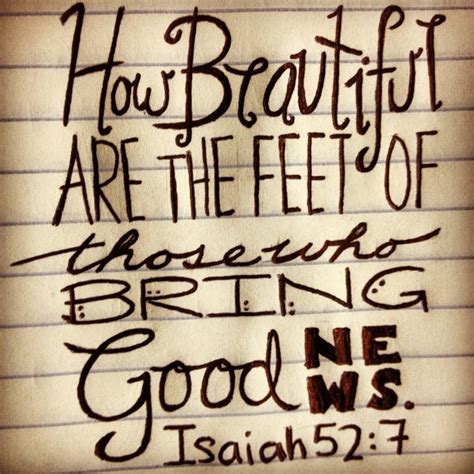 How Beautiful
ARE THE FEET OF
those who
BRING
Good NEWS.
Isaiah 52:7